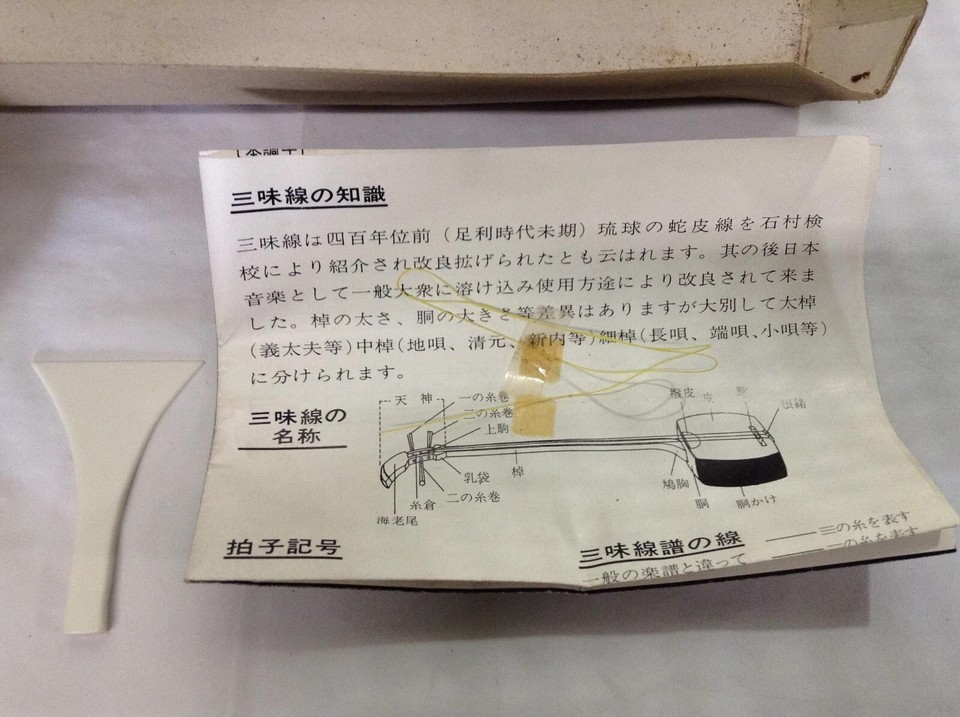 三味線の知識
三味線は四百年位前（足利時代末期）琉球の蛇皮線を石村検
校により紹介され改良拡げられたとも云はれます。其の後日本
音楽として一般大衆に溶け込み使用方途により改良されて来ま
した。棹の太さ、胴の大きさ等差異はありますが大別して太棹
（義太夫等）中棹（地唄、清元、新内等）細棹（長唄、端唄、小唄等）
に分けられます。
三味線の
名称
天神
一の糸巻
三の糸巻
上駒
乳袋
二の糸巻
糸倉
海老尾
棹
撥皮
皮
駒
根緒
鳩胸
胴
胴かけ
拍子記号
三味線譜の線
一般の楽譜と違って
三の糸を表す
一の糸を表す